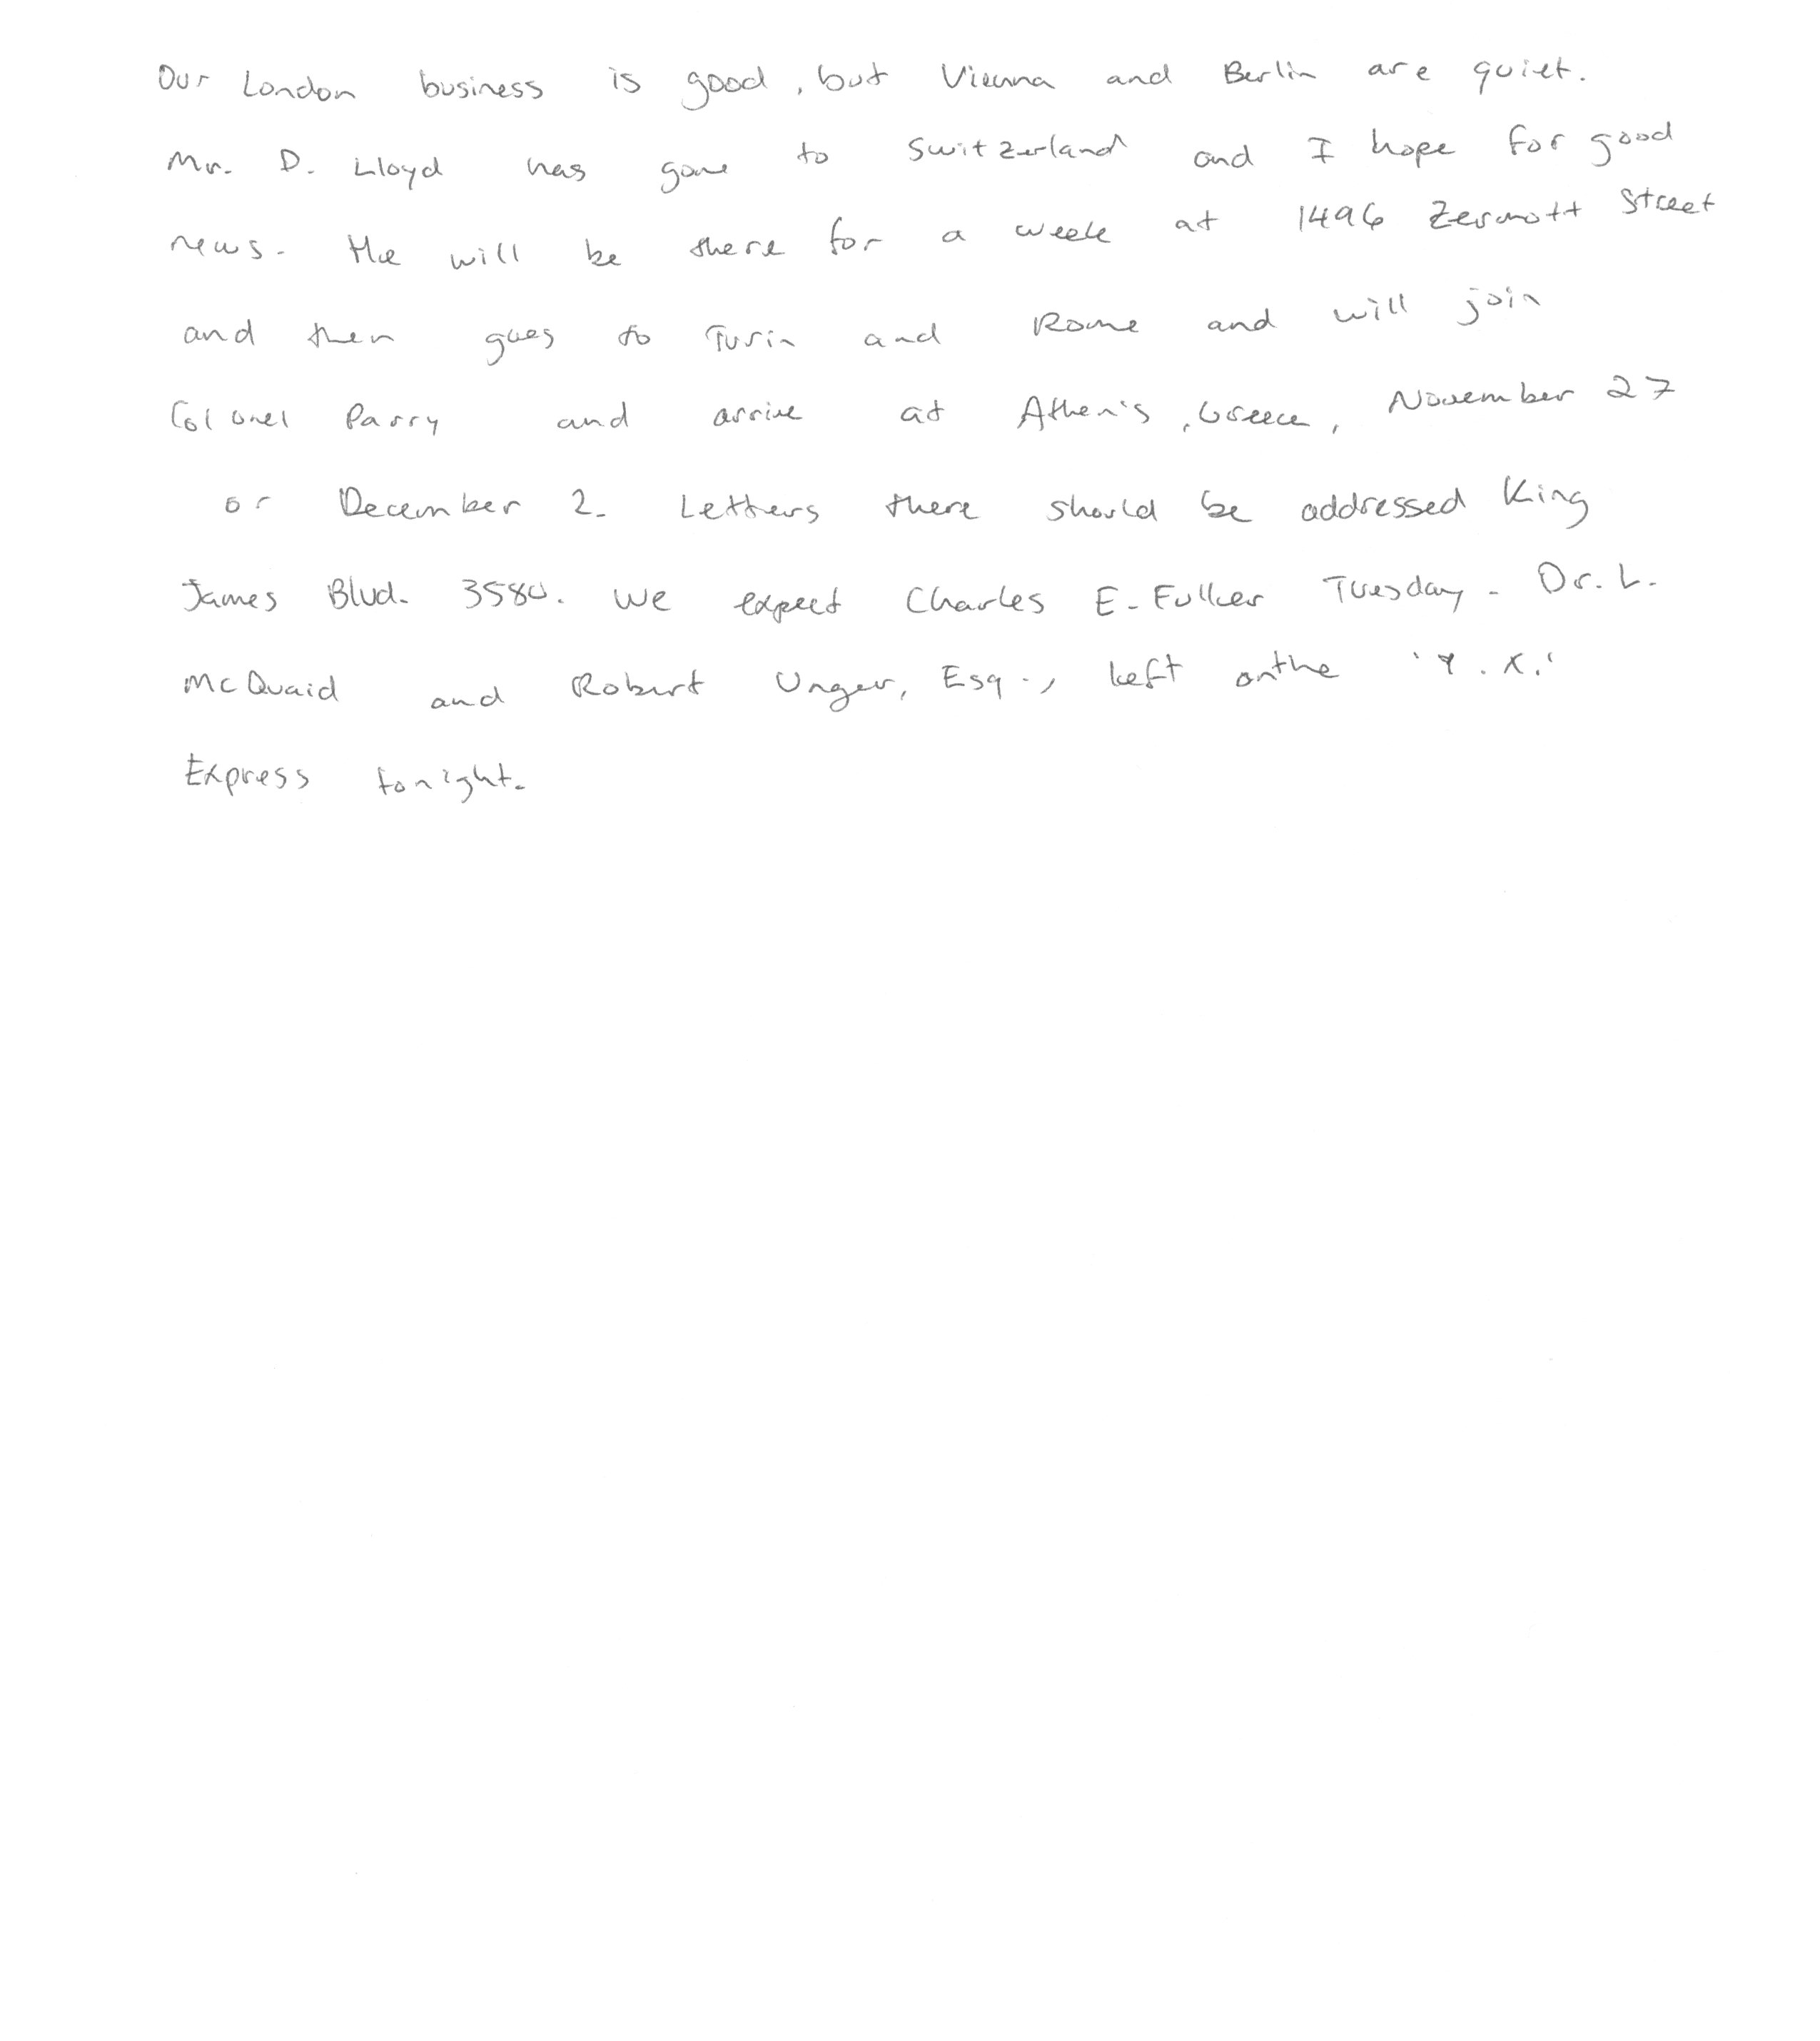 Our London business is good, but Vienna and Berlin are quiet.
Mr. D. Lloyd has gone to Switzerland and I hope for good
news. He will be there for a week at 1496 Zermott Street
and then goes to Turin and Rome and will join
Colonel Parry and arrive at Athen's, Greece, November 27
or December 2. Letters there should be addressed King
James Blvd. 3580. We expect Charles E. Fuller Tuesday. Dr. L.
McQuaid and Robert Unger, Esq., left on the 'Y.X.'
Express tonight.